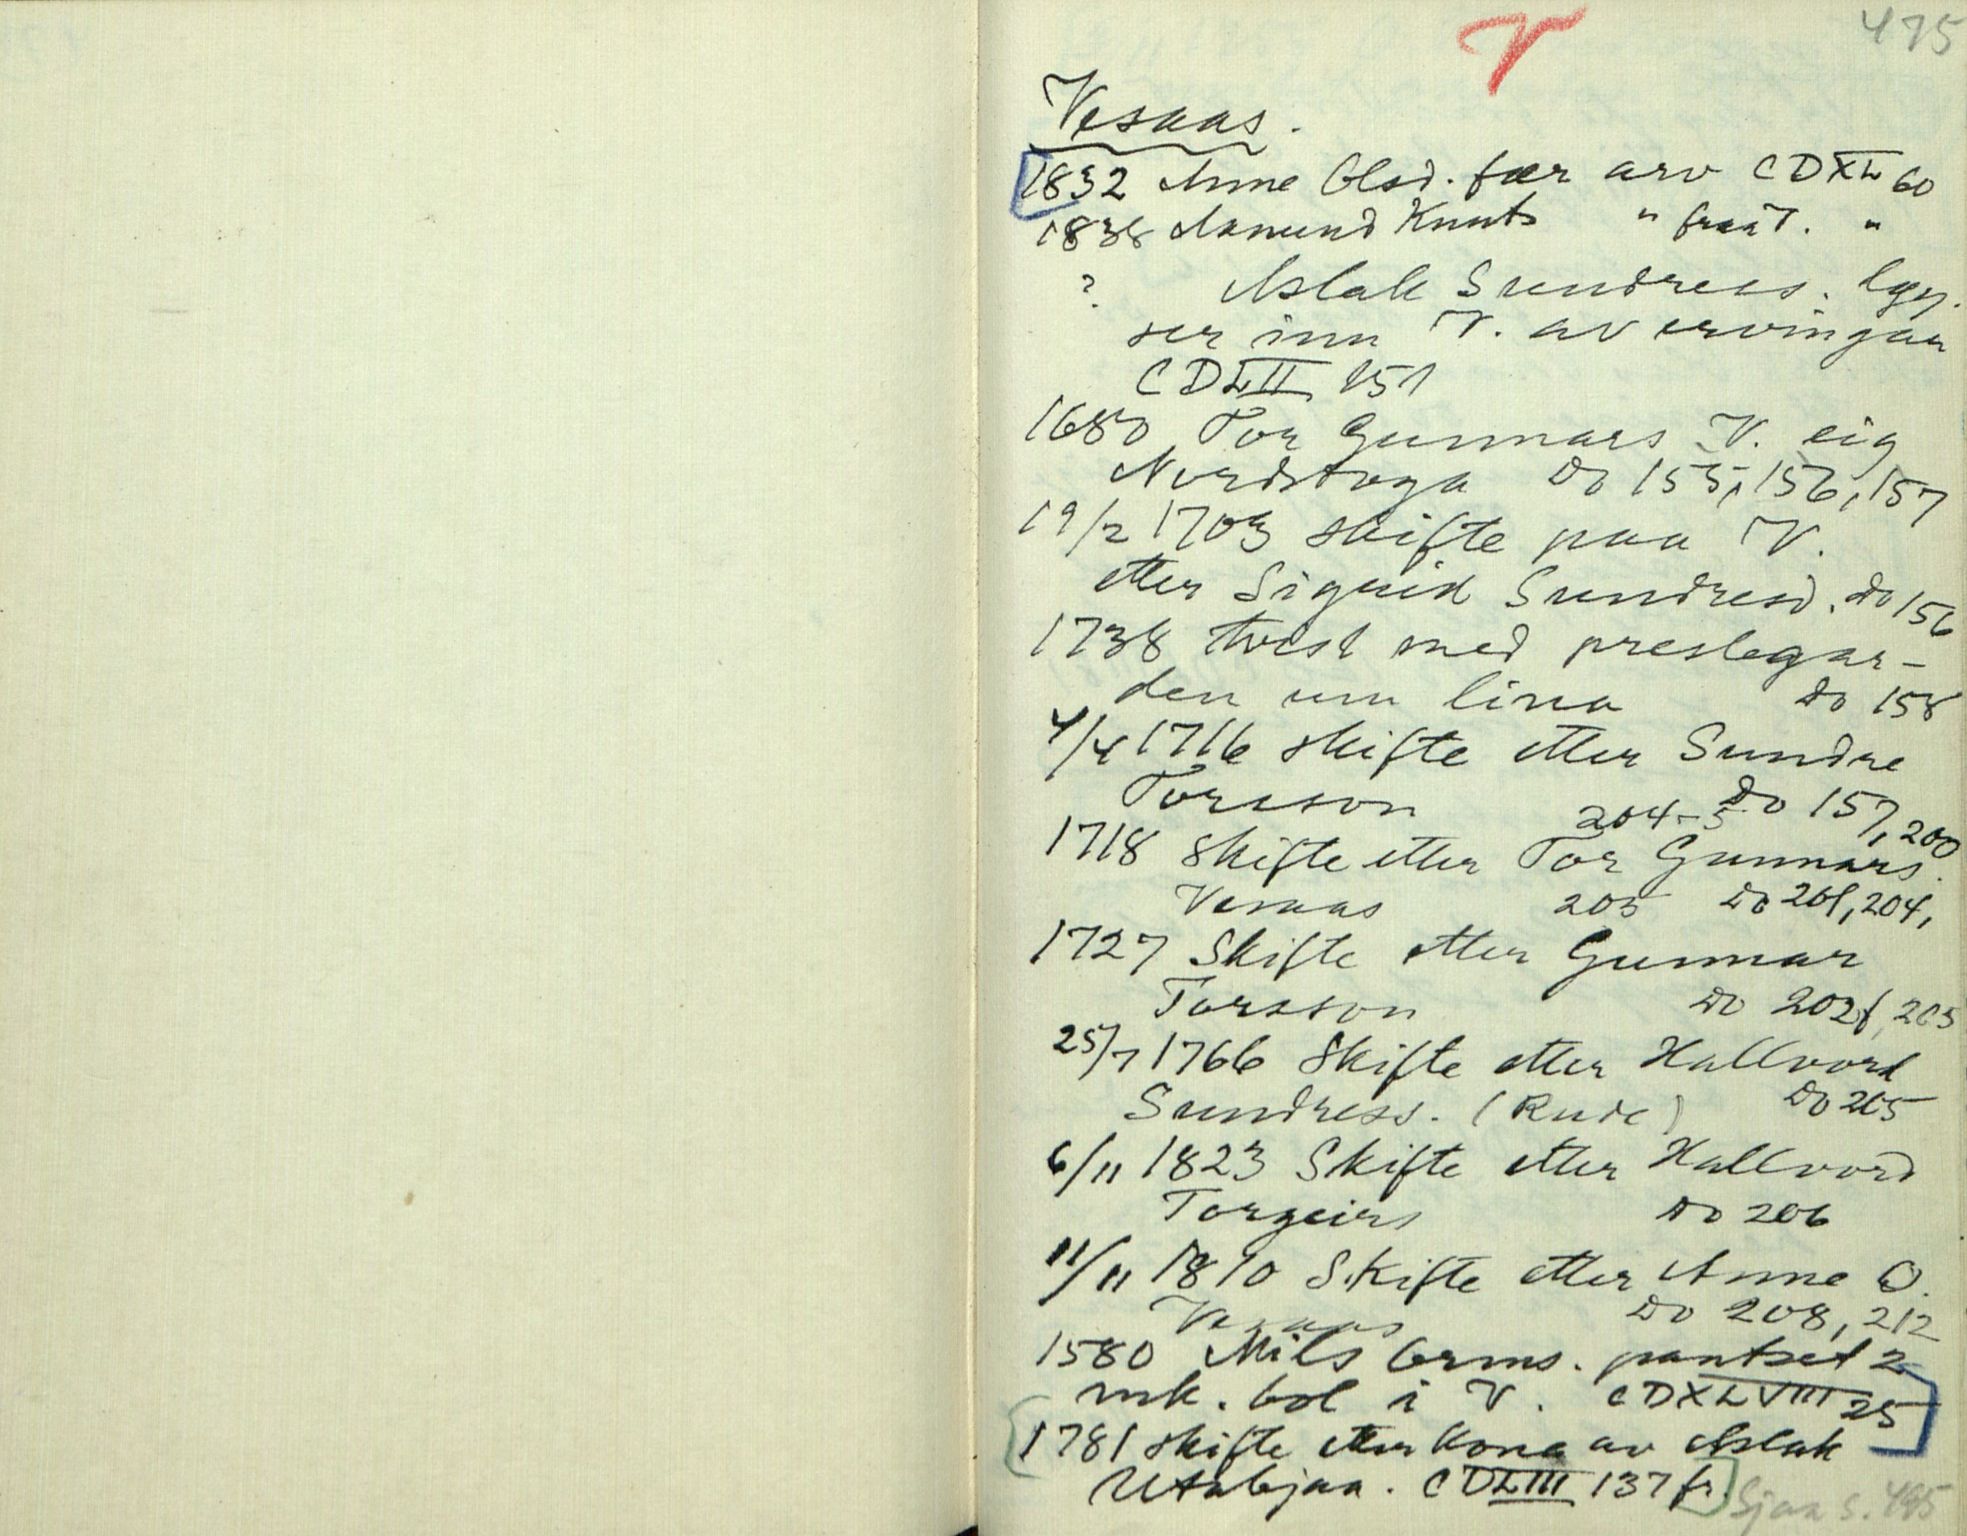 V 475
Vesaas.
1832 Anne Olsd. fær arv CDXL 60
1838 Aamund Knuts " fraa T. "
? Aslak Sundress. løy-
ser inn V. av ervingan
CDLII 151
1680 Tor Gunnars V. eig
Nordstoga Do 155, 156, 157
19/2 1703 skifte paa V.
etter Sigrid Sundresd. Do 156
1738 tvist med prestegar-
den um lina Do 158
4/4 1716 skifte etter Sundre
Torsson Do 157, 200
204-5
1718 Skifte etter Tor Gunnars.
Vesaas 205 Do 201, 204,
1727 Skifte etter Gunnar
Torsson Do 202f, 205
25/7 1766 Skifte etter Hallvord
Sundress. (Rude) Do 205
6/11 1823 Skifte etter Hallvord
Torgeirs Do 206
11/11 1810 Skifte etter Anne O.
Vesaas Do 208, 212
1580 Nils Orms. pantset 2
mk. bol i V. CDXLVIII 25
1781 skifte etter kona av Aslak
Utabjaa. CDLIII 137 fr.
Sjaa s. 495